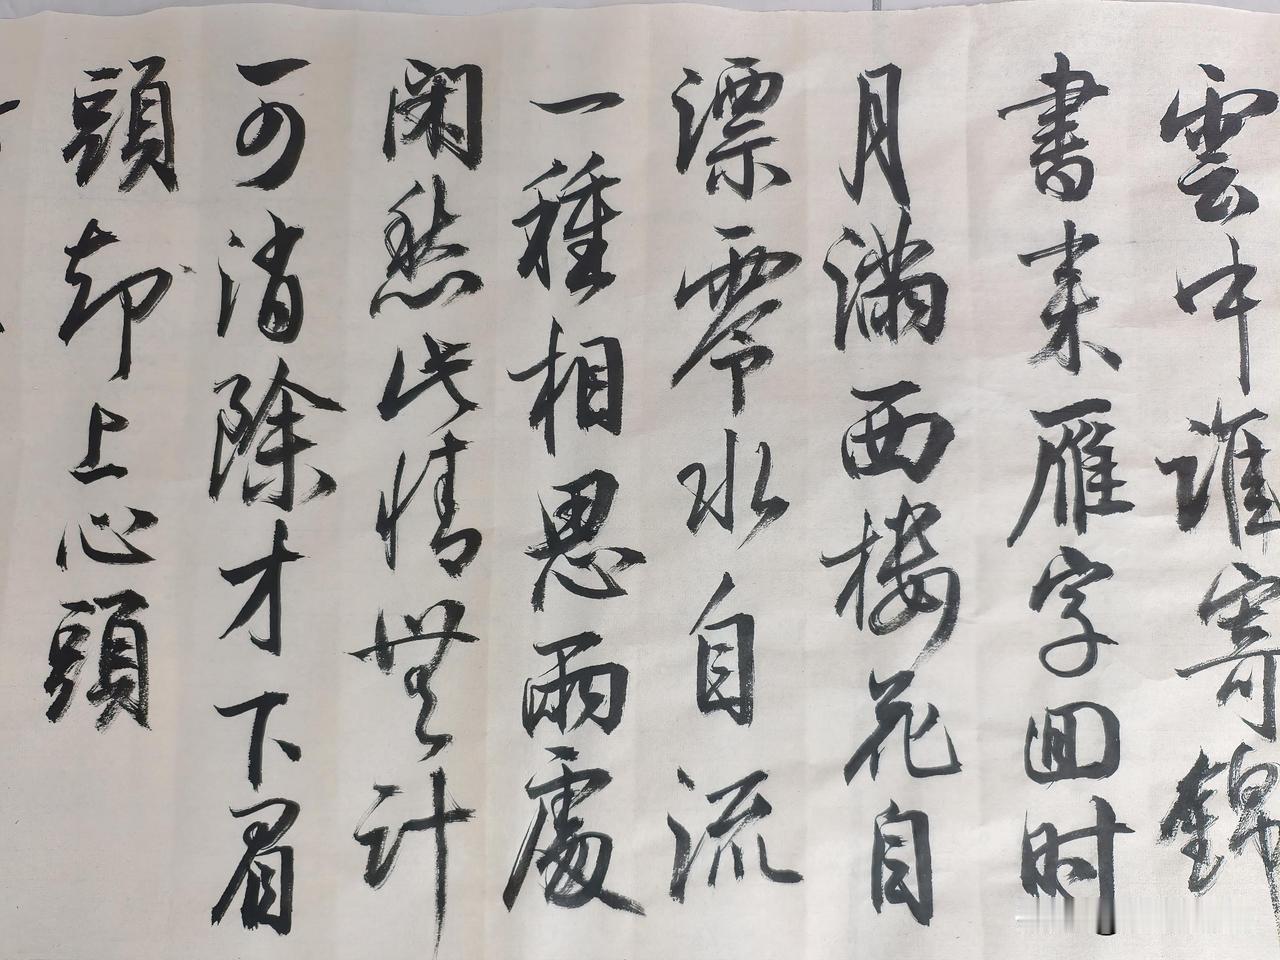 雲中誰寄錦
書来雁字回时
月滿西楼花自
漂零水自流
一種相思兩處
闲愁此情無計
可消除才下眉
頭却上心頭